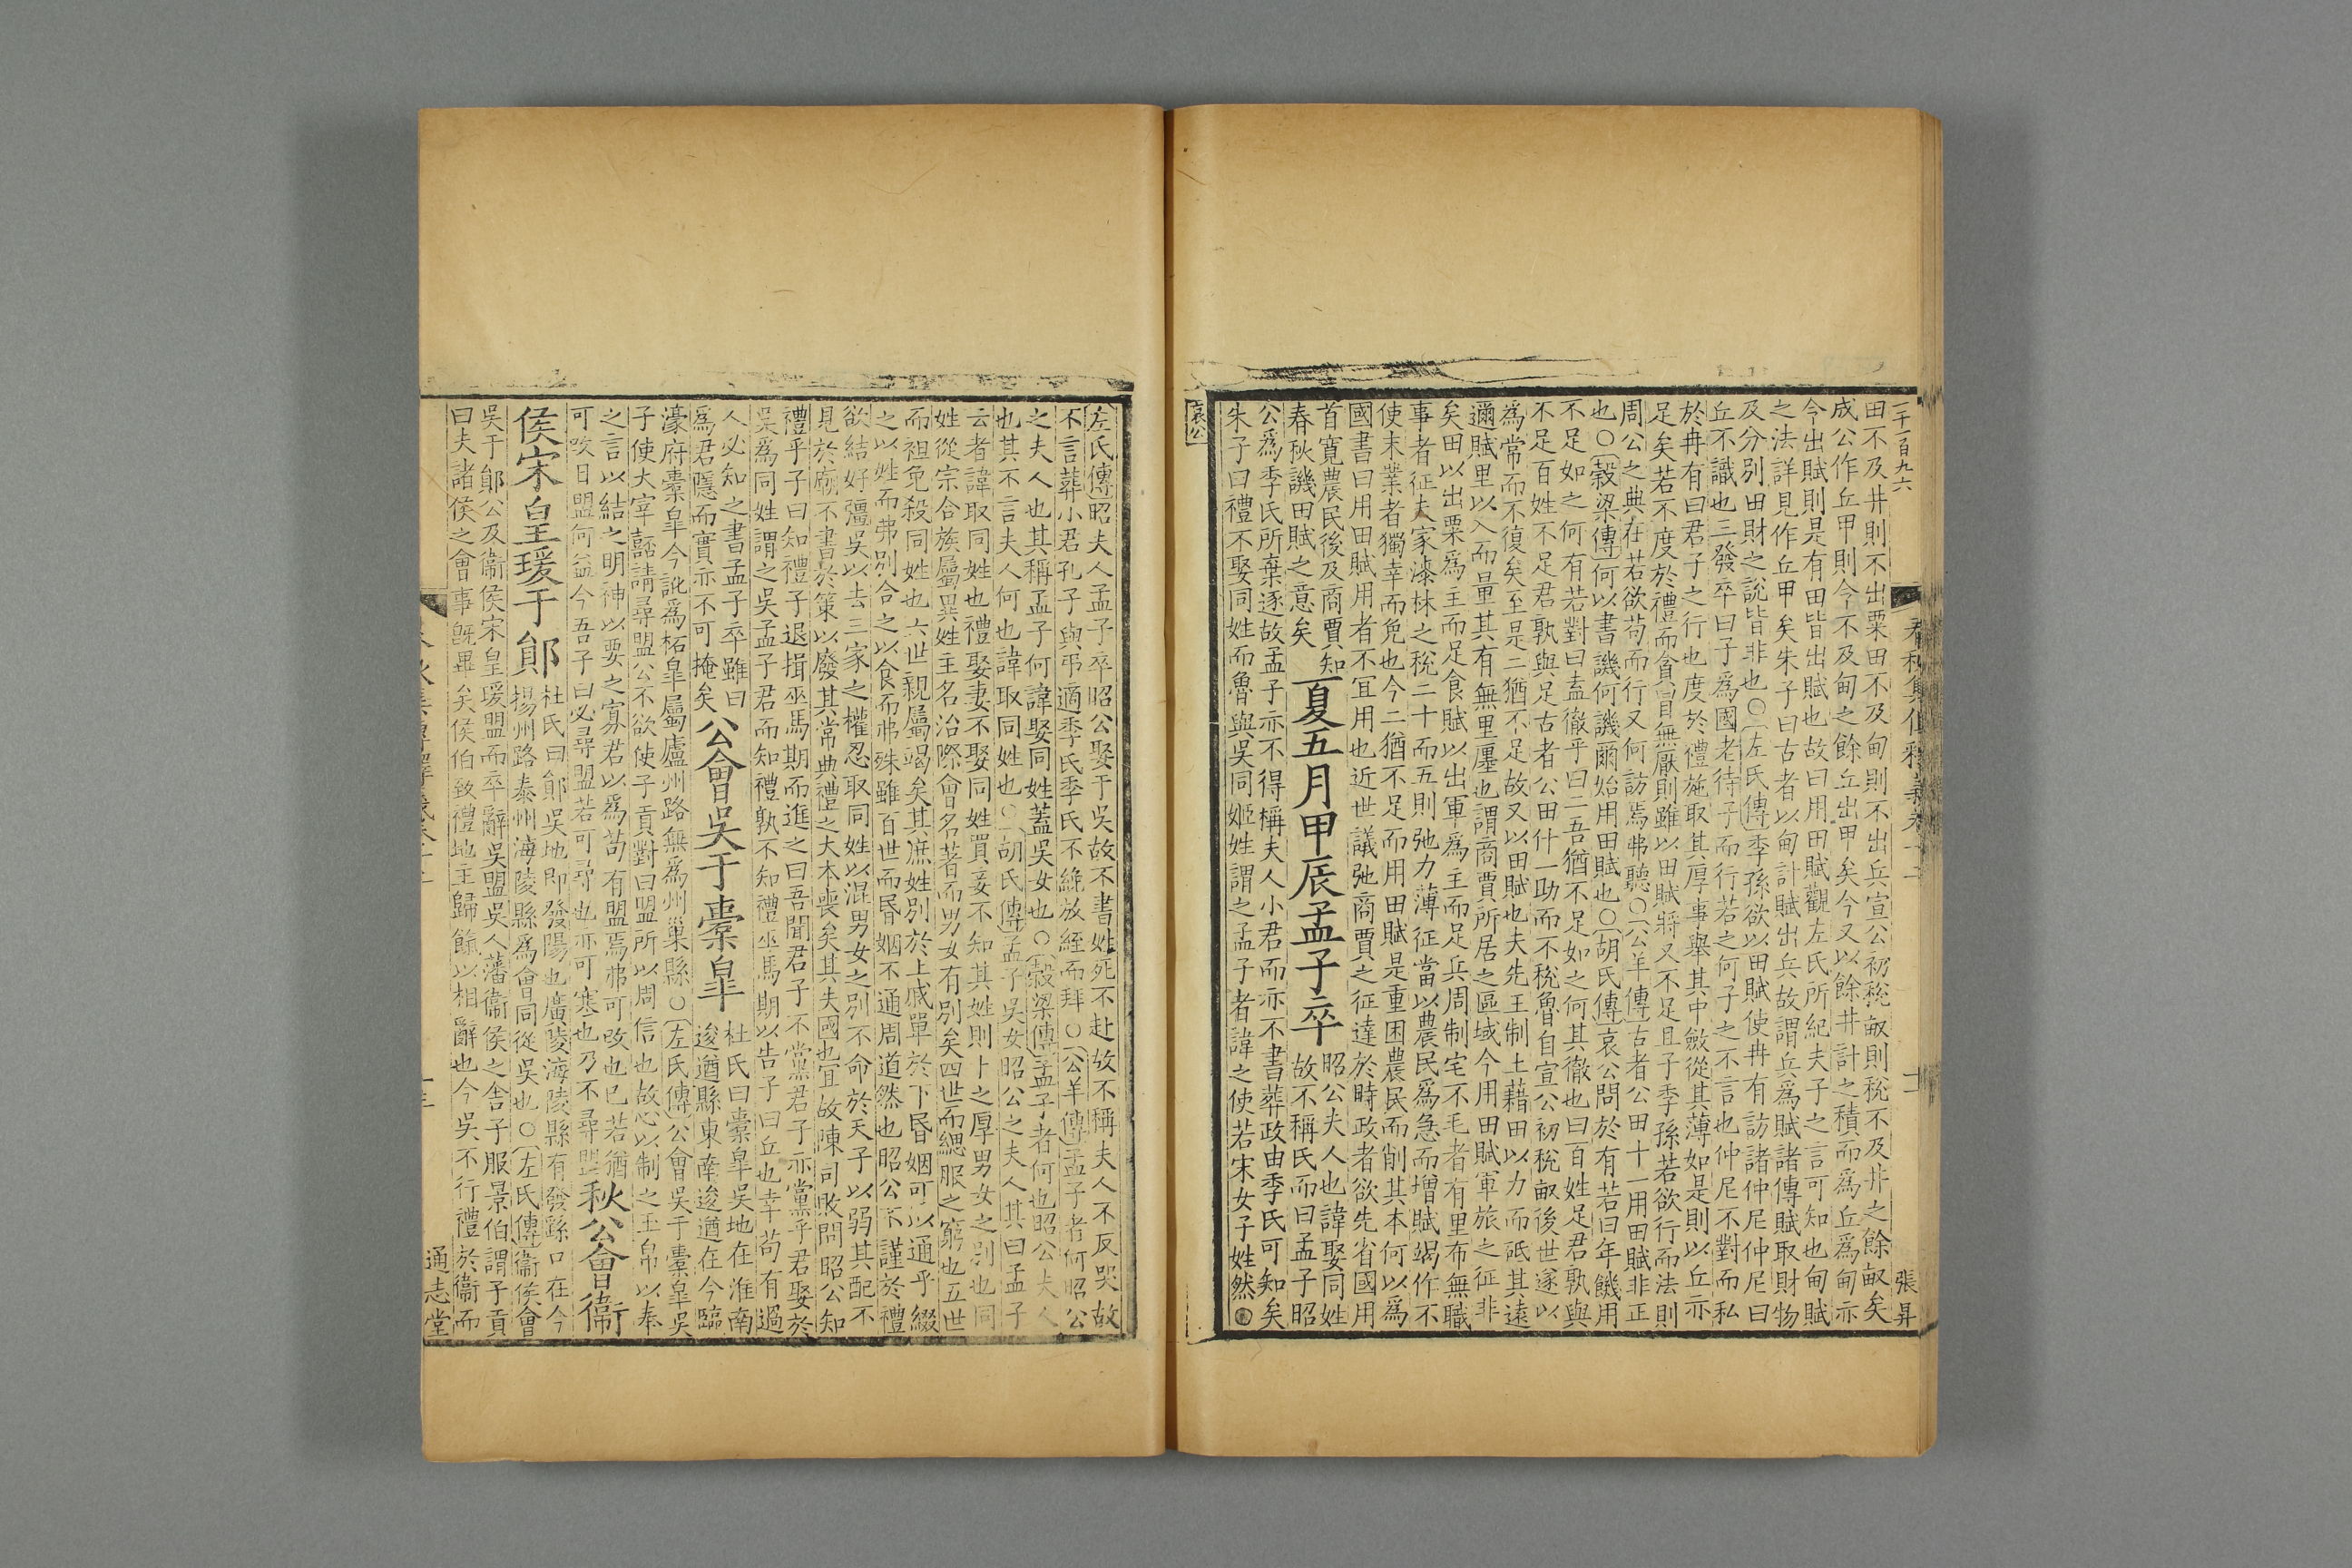 一千一百九六
張昇
田不及井則不出粟田不及甸則不出兵宣公初稅畝則稅不及井之餘畝矣
成公作丘甲則今不及甸之餘丘出甲矣今又以餘井計之積而爲丘爲甸亦
今出賦則是有田皆出賦也故曰用田賦觀左氏所紀夫子之言可知也甸賦
之法詳見作丘甲矣朱子曰古者以甸計賦出兵故謂兵爲賦諸傳賦取財物
及分別田財之說皆非也○左氏傳季孫欲以田賦使冉有訪諸仲尼仲尼曰
丘不識也三發卒曰子爲國老待子而行若之何子之不言也仲尼不對而私
於冉有曰君子之行也度於禮施取其厚事舉其中斂從其薄如是則以丘亦
足矣若不度於禮而貪冒無厭則雖以田賦將又不足且子季孫若欲行而法則
周公之典在若欲苟而行又何訪焉弗聽○公羊傳古者公田十一用田賦非正
也○穀梁傳何以書譏何譏爾始用田賦也○胡氏傳哀公問於有若曰年饑用
不足如之何有若對曰盍徹乎曰二吾猶不足如之何其徹也曰百姓足君孰與
不足百姓不足君孰與足古者公田什一助而不稅魯自宣公初稅畝後世遂以
爲常而不復矣至是二猶不足故又以田賦也夫先王制土藉田以力而砥其遠
邇賦里以入而量其有無里廛也謂商賈所居之區域今用田賦軍旅之征非
矣田以出粟爲主而足食賦以出軍爲主而足兵周制宅不毛者有里布無職
事者征夫家漆林之稅二十而五則弛力薄征當以農民爲急而增賦竭作不
使末業者獨幸而免也今二猶不足而用田賦是重困農民而削其本何以爲
國書曰用田賦用者不宜用也近世議弛商賈之征達於時政者欲先省國用
首寬農民後及商賈知
春秋譏田賦之意矣
夏五月甲辰孟子卒
昭公夫人也諱娶同姓
故不稱氏而曰孟子昭
公爲季氏所棄逐故孟子亦不得稱夫人小君而亦不書葬政由季氏可知矣
朱子曰禮不娶同姓而魯與吳同姬姓謂之孟子者諱之使若宋女子姓然
哀公
左氏傳昭夫人孟子卒昭公娶于吳故不書姓死不赴故不稱夫人不反哭故
不言葬小君孔子與弔適季氏季氏不絻放絰而拜○公羊傳孟子者何昭公
之夫人也其稱孟子何諱娶同姓蓋吳女也○穀梁傳孟子者何也昭公夫人
也其不言夫人何也諱取同姓也○胡氏傳孟子吳女昭公之夫人其曰孟子
云者諱取同姓也禮娶妻不娶同姓買妾不知其姓則卜之厚男女之別也同
姓從宗合族屬異姓主名治際會名著而男女有別矣四世而緦服之窮也五世
而袒免殺同姓也六世親屬竭矣其庶姓別於上戚單於下昏姻可以通乎綴
之以姓而弗別合之以食而弗殊雖百世而昏姻不通周道然也昭公不謹於禮
欲結好彊吳以去三家之權忍取同姓以混男女之別不命於天子以弱其配不
見於廟不書於策以廢其常典禮之大本喪矣其夫國也宜故陳司敗問昭公知
禮乎子曰知禮子退揖巫馬期而進之曰吾聞君子不黨君子亦黨乎君娶於
吳爲同姓謂之吳孟子君而知禮孰不知禮巫馬期以告子曰丘也幸苟有過
人必知之書孟子卒雖曰
爲君隱而實亦不可掩矣
公會吳于橐皐
杜氏曰橐皐吳地在淮南
逡遒縣東南逡遒在今臨
濠府橐皐今訛爲柘皐屬廬州路無爲州巢縣○左氏傳公會吳于橐皐吳
子使大宰嚭請尋盟公不欲使子貢對曰盟所以周信也故心以制之玉帛以奉
之言以結之明神以要之寡君以爲苟有盟焉弗可改也已若猶
可改日盟何益今吾子曰必尋盟若可尋也亦可寒也乃不尋盟
秋公會衞
侯宋皇瑗于鄖
杜氏曰鄖吳地即發陽也廣陵海陵縣有發繇口在今
揚州路泰州海陵縣爲會同從吳也○左氏傳衞侯會
吳于鄖公及衞侯宋皇瑗盟而卒辭吳盟吳人藩衞侯之舍子服景伯謂子貢
曰夫諸侯之會事既畢矣侯伯致禮地主歸餼以相辭也今吳不行禮於衞而
通志堂